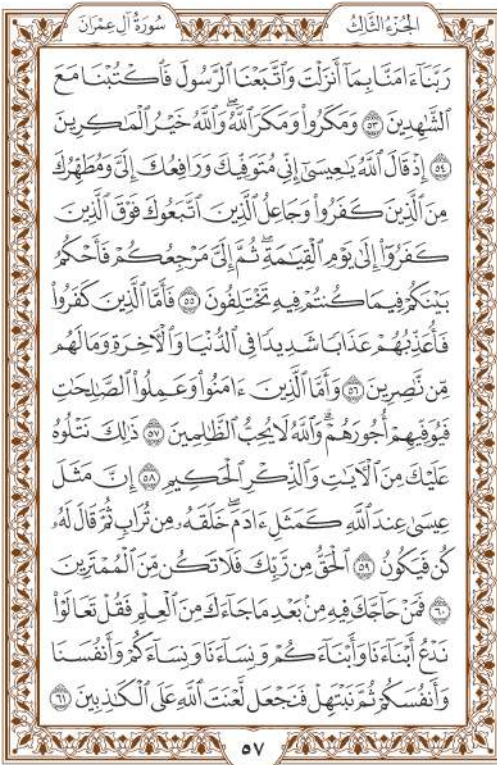 الجزء الثالث
سورة آل عمران
رَبَّنَآ ءَامَنَّا بِمَآ أَنزَلْتَ وَٱتَّبَعْنَا ٱلرَّسُولَ فَٱكْتُبْنَا مَعَ
ٱلشَّٰهِدِينَ ٥٣ وَمَكَرُوا۟ وَمَكَرَ ٱللَّهُ ۖ وَٱللَّهُ خَيْرُ ٱلْمَٰكِرِينَ
٥٤ إِذْ قَالَ ٱللَّهُ يَٰعِيسَىٰٓ إِنِّى مُتَوَفِّيكَ وَرَافِعُكَ إِلَىَّ وَمُطَهِّرُكَ
مِنَ ٱلَّذِينَ كَفَرُوا۟ وَجَاعِلُ ٱلَّذِينَ ٱتَّبَعُوكَ فَوْقَ ٱلَّذِينَ
كَفَرُوٓا۟ إِلَىٰ يَوْمِ ٱلْقِيَٰمَةِ ۖ ثُمَّ إِلَىَّ مَرْجِعُكُمْ فَأَحْكُمُ
بَيْنَكُمْ فِيمَا كُنتُمْ فِيهِ تَخْتَلِفُونَ ٥٥ فَأَمَّا ٱلَّذِينَ كَفَرُوا۟
فَأُعَذِّبُهُمْ عَذَابًا شَدِيدًا فِى ٱلدُّنْيَا وَٱلْءَاخِرَةِ وَمَا لَهُم
مِّن نَّٰصِرِينَ ٥٦ وَأَمَّا ٱلَّذِينَ ءَامَنُوا۟ وَعَمِلُوا۟ ٱلصَّٰلِحَٰتِ
فَيُوَفِّيهِمْ أُجُورَهُمْ ۗ وَٱللَّهُ لَا يُحِبُّ ٱلظَّٰلِمِينَ ٥٧ ذَٰلِكَ نَتْلُوهُ
عَلَيْكَ مِنَ ٱلْءَايَٰتِ وَٱلذِّكْرِ ٱلْحَكِيمِ ٥٨ إِنَّ مَثَلَ
عِيسَىٰ عِندَ ٱللَّهِ كَمَثَلِ ءَادَمَ ۖ خَلَقَهُۥ مِن تُرَابٍ ثُمَّ قَالَ لَهُۥ
كُن فَيَكُونُ ٥٩ ٱلْحَقُّ مِن رَّبِّكَ فَلَا تَكُن مِّنَ ٱلْمُمْتَرِينَ
٦٠ فَمَنْ حَآجَّكَ فِيهِ مِنۢ بَعْدِ مَا جَآءَكَ مِنَ ٱلْعِلْمِ فَقُلْ تَعَالَوْا۟
نَدْعُ أَبْنَآءَنَا وَأَبْنَآءَكُمْ وَنِسَآءَنَا وَنِسَآءَكُمْ وَأَنفُسَنَا
وَأَنفُسَكُمْ ثُمَّ نَبْتَهِلْ فَنَجْعَل لَّعْنَتَ ٱللَّهِ عَلَى ٱلْكَٰذِبِينَ ٦١
٥٧